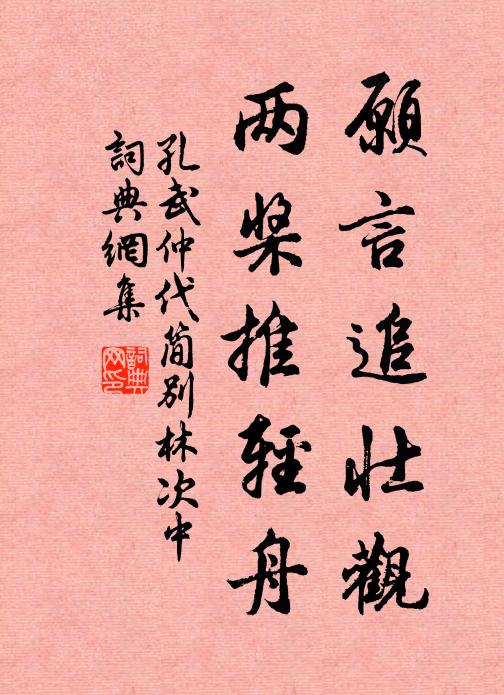 願言追壯觀
两槳推輕舟
孔武仲代簡別林次中
詞典網集
詞典网印